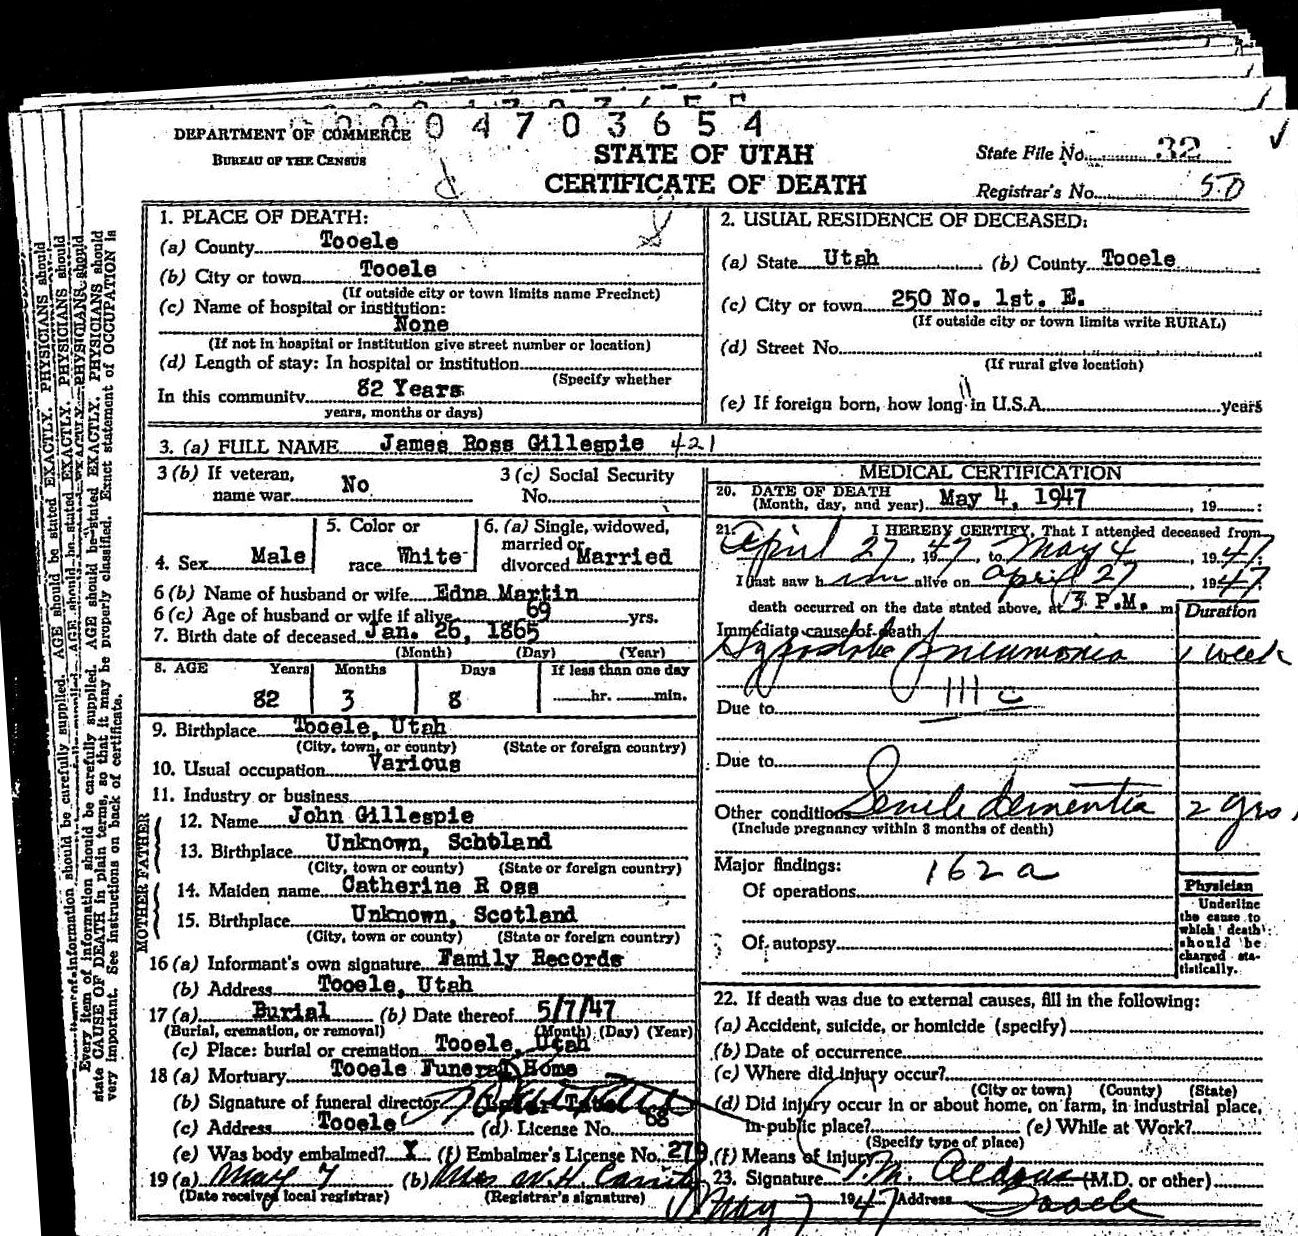 0004703654
DEPARTMENT OF COMMERCE
BUREAU OF THE CENSUS
STATE OF UTAH
CERTIFICATE OF DEATH
State File No. 32
Registrar's No. 50
1. PLACE OF DEATH:
(a) County Tooele
(b) City or town Tooele
(If outside city or town limits name Precinct)
(c) Name of hospital or institution:
None
(If not in hospital or institution give street number or location)
(d) Length of stay: In hospital or institution
(Specify whether
In this community 82 Years
years, months or days)
2. USUAL RESIDENCE OF DECEASED:
(a) State Utah (b) County Tooele
(c) City or town 250 No. 1st. E.
(If outside city or town limits write RURAL)
(d) Street No.
(If rural give location)
(e) If foreign born, how long in U.S.A. years
3. (a) FULL NAME James Ross Gillespie 421
3 (b) If veteran, name war No
3 (c) Social Security No.
4. Sex Male
5. Color or race White
6. (a) Single, widowed, married or divorced Married
6 (b) Name of husband or wife Edna Martin
6 (c) Age of husband or wife if alive 69 yrs.
7. Birth date of deceased Jan. 26, 1865
(Month) (Day) (Year)
8. AGE Years Months Days If less than one day
82 3 8 hr. min.
9. Birthplace Tooele, Utah
(City, town, or county) (State or foreign country)
10. Usual occupation Various
11. Industry or business
FATHER
12. Name John Gillespie
13. Birthplace Unknown, Scbtland
(City, town or county) (State or foreign country)
MOTHER
14. Maiden name Catherine R oss
15. Birthplace Unknown, Scotland
(City, town, or county) (State or foreign country)
16 (a) Informant's own signature Family Records
(b) Address Tooele, Utah
17 (a) Burial (b) Date thereof 5/7/47
(Burial, cremation, or removal) (Month) (Day) (Year)
(c) Place: burial or cremation Tooele, Utah
18 (a) Mortuary Tooele Funeral Home
(b) Signature of funeral director
(c) Address Tooele (d) License No. 68
(e) Was body embalmed? X (f) Embalmer's License No. 279
19 (a) May 7 (b) Mrs W. H.
(Date received local registrar) (Registrar's signature)
MEDICAL CERTIFICATION
20. DATE OF DEATH
(Month, day, and year) May 4, 1947, 19 :
21. I HEREBY CERTIFY, That I attended deceased from
April 27, 1947, to May 4, 1947.
I last saw h im alive on April 27, 1947.
death occurred on the date stated above, at 3 P.M. m
Duration
Immediate cause of death
Pneumonia 1 week
111 c
Due to
Due to
Other conditions Senile dementia 2 yrs.
(Include pregnancy within 3 months of death)
Major findings: 162 a
Of operations
Of autopsy
Physician
Underline
the cause to
which death
should be
charged sta-
tistically.
22. If death was due to external causes, fill in the following:
(a) Accident, suicide, or homicide (specify)
(b) Date of occurrence
(c) Where did injury occur?
(City or town) (County) (State)
(d) Did injury occur in or about home, on farm, in industrial place,
in public place? (e) While at Work?
(Specify type of place)
(f) Means of injury
23. Signature (M.D. or other)
May 7 1947 Address Tooele
Every item of information should be carefully supplied. AGE should be stated EXACTLY. PHYSICIANS should
state CAUSE OF DEATH in plain terms, so that it may be properly classified. Exact statement of OCCUPATION is
very important. See instructions on back of certificate.